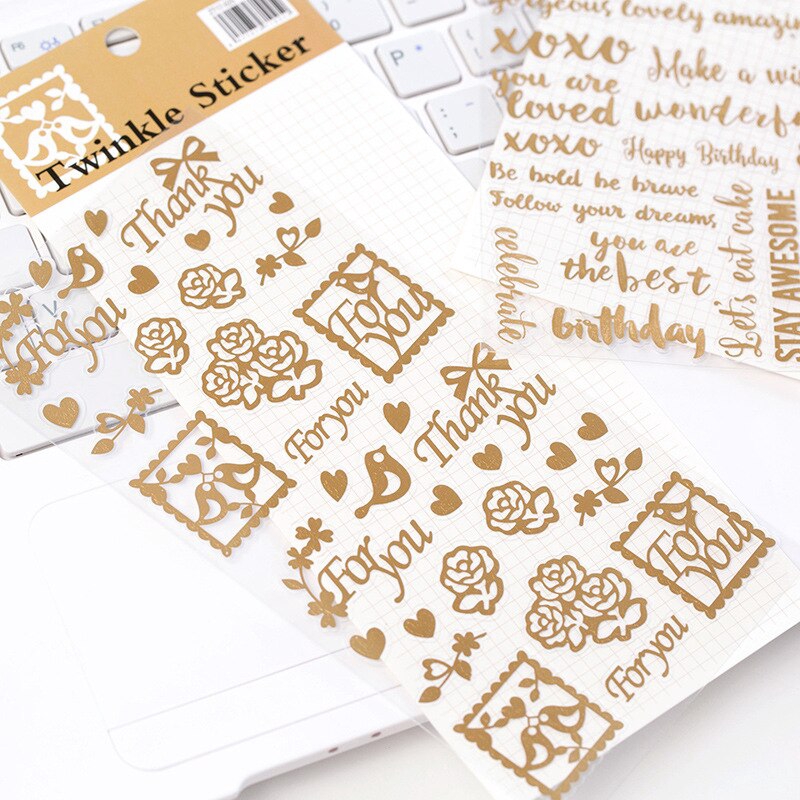 Twinkle Sticker
Thank
you
For you
For
you
For you
Thank
you
For you
For
you
For you
gorgeous lovely amazing
xoxo
Make a wi
you are
loved wonderfu
xoxo
Happy Birthday
Be bold be brave
Follow your dreams
celebrate
you are
the best
birthday
Let's eat cake
STAY AWESOME